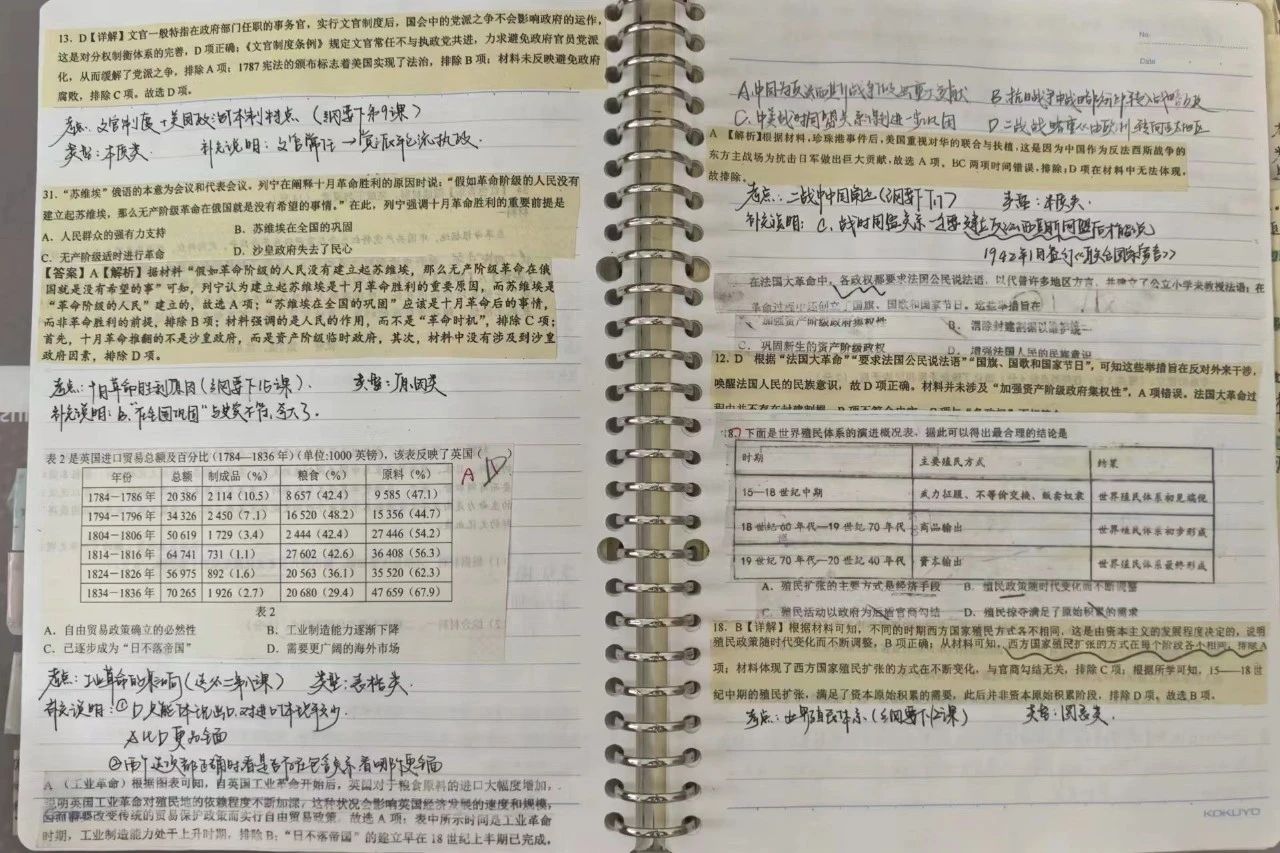 13. D【详解】文官一般特指在政府部门任职的事务官，实行文官制度后，国会中的党派之争不会影响政府的运作，
这是对分权制衡体系的完善，D 项正确；《文官制度条例》规定文官常任不与执政党共进，力求避免政府官员党派
化，从而缓解了党派之争，排除 A 项；1787 宪法的颁布标志着美国实现了法治，排除 B 项；材料未反映避免政府
腐败，排除 C 项。故选 D 项。
考点：文官制度+美国政治体制特点 （纲要下第9课）
类型：本质类 补充说明：文官常任→党派轮流执政.
31. “苏维埃”俄语的本意为会议和代表会议。列宁在阐释十月革命胜利的原因时说：“假如革命阶级的人民没有
建立起苏维埃，那么无产阶级革命在俄国就是没有希望的事情。”在此，列宁强调十月革命胜利的重要前提是
A．人民群众的强有力支持 B．苏维埃在全国的巩固
C．无产阶级适时进行革命 D．沙皇政府失去了民心
【答案】A【解析】据材料“假如革命阶级的人民没有建立起苏维埃，那么无产阶级革命在俄
国就是没有希望的事”可知，列宁认为建立起苏维埃是十月革命胜利的重要原因，而苏维埃是
“革命阶级的人民”建立的，故选 A 项；“苏维埃在全国的巩固”应该是十月革命后的事情，
而非革命胜利的前提，排除 B 项；材料强调的是人民的作用，而不是“革命时机”，排除 C 项；
首先，十月革命推翻的不是沙皇政府，而是资产阶级临时政府，其次，材料中没有涉及到沙皇
政府因素，排除 D 项。
考点：十月革命胜利原因（纲要下15课）. 类型：原因类
补充说明：B.“在全国巩固”与史实不符，
表 2 是英国进口贸易总额及百分比（1784—1836 年）（单位:1000 英镑），该表反映了英国（ ）
A D
年份 总额 制成品（%） 粮食（%） 原料（%）
1784—1786 年 20 386 2 114（10.5） 8 657（42.4） 9 585（47.1）
1794—1796 年 34 326 2 450（7.1） 16 520（48.2） 15 356（44.7）
1804—1806 年 50 619 1 729（3.4） 2 444（42.4） 27 446（54.2）
1814—1816 年 64 741 731（1.1） 27 602（42.6） 36 408（56.3）
1824—1826 年 56 975 892（1.6） 20 563（36.1） 35 520（62.3）
1834—1836 年 70 265 1 926（2.7） 20 680（29.4） 47 659（67.9）
表 2
A．自由贸易政策确立的必然性 B．工业制造能力逐渐下降
C．已逐步成为“日不落帝国” D．需要更广阔的海外市场
考点：工业革命的影响（ 课） 类型：表格类
补充说明：①D只能体现出口，对进口体现较少.
A比D更为全面
②两个选项都正确时看是否存在包含关系看哪个更全面
A （工业革命）根据图表可知，自英国工业革命开始后，英国对于粮食原料的进口大幅度增加，
说明英国工业革命对殖民地的依赖程度不断加深，这种状况会影响英国经济发展的速度和规模，
因而需要改变传统的贸易保护政策而实行自由贸易政策。故选 A 项；表中所示时间是工业革命
时期，工业制造能力处于上升时期，排除 B；“日不落帝国”的建立早在 18 世纪上半期已完成，
No.
Date
A.中国为反法西斯战争做出重大贡献 B.抗日战争由战略防御转入战略反攻
C.中美战时同盟关系得到进一步巩固 D.二战战略重心由欧洲转向亚太地区
A 【解析】根据材料，珍珠港事件后，美国重视对华的联合与扶植，这是因为中国作为反法西斯战争的
东方主战场为抗击日军做出巨大贡献，故选 A 项。BC 两项时间错误，排除；D 项在材料中无法体现，
故排除。
考点：二战中中国 （纲要下17） 类型：本质类.
补充说明：C.战时同盟关系 建立反法西斯同盟后才能说
1942年1月签订《联合国家宣言》
在法国大革命中，各政权都要求法国公民说法语，以代替许多地区方言，并建立了公立小学来教授法语；在
革命过程中还创立了国旗、国歌和国家节日。这些举措旨在
加强资产阶级政府集权性 B． 清除封建割据以维护统一
C． 巩固新生的资产阶级政权 D．增强法国人民的民族意识
12. D 根据“法国大革命”“要求法国公民说法语”“国旗、国歌和国家节日”，可知这些举措旨在反对外来干涉，
唤醒法国人民的民族意识，故 D 项正确，材料并未涉及“加强资产阶级政府集权性”，A 项错误。法国大革命过
18．下面是世界殖民体系的演进概况表，据此可以得出最合理的结论是
时期 主要殖民方式 结果
15—18 世纪中期 武力征服、不等价交换、贩卖奴隶 世界殖民体系初见端倪
18 世纪 60 年代—19 世纪 70 年代 商品输出 世界殖民体系初步形成
19 世纪 70 年代—20 世纪 40 年代 资本输出 世界殖民体系最终形成
A．殖民扩张的主要方式是经济手段 B．殖民政策随时代变化而不断调整
C．殖民活动以政府为后盾官商勾结 D．殖民掠夺满足了原始积累的需求
18. B【详解】根据材料可知，不同的时期西方国家殖民方式各不相同，这是由资本主义的发展程度决定的，说明
殖民政策随时代变化而不断调整，B 项正确；从材料可知，西方国家殖民扩张的方式在每个阶段各不相同，排除 A
项；材料体现了西方国家殖民扩张的方式在不断变化，与官商勾结无关，排除 C 项；根据所学可知，15——18 世
纪中期的殖民扩张，满足了资本原始积累的需要，此后并非资本原始积累阶段，排除 D 项。故选 B 项。
考点：世界殖民体系（纲要下12课） 类型：图表类.
KOKUYO